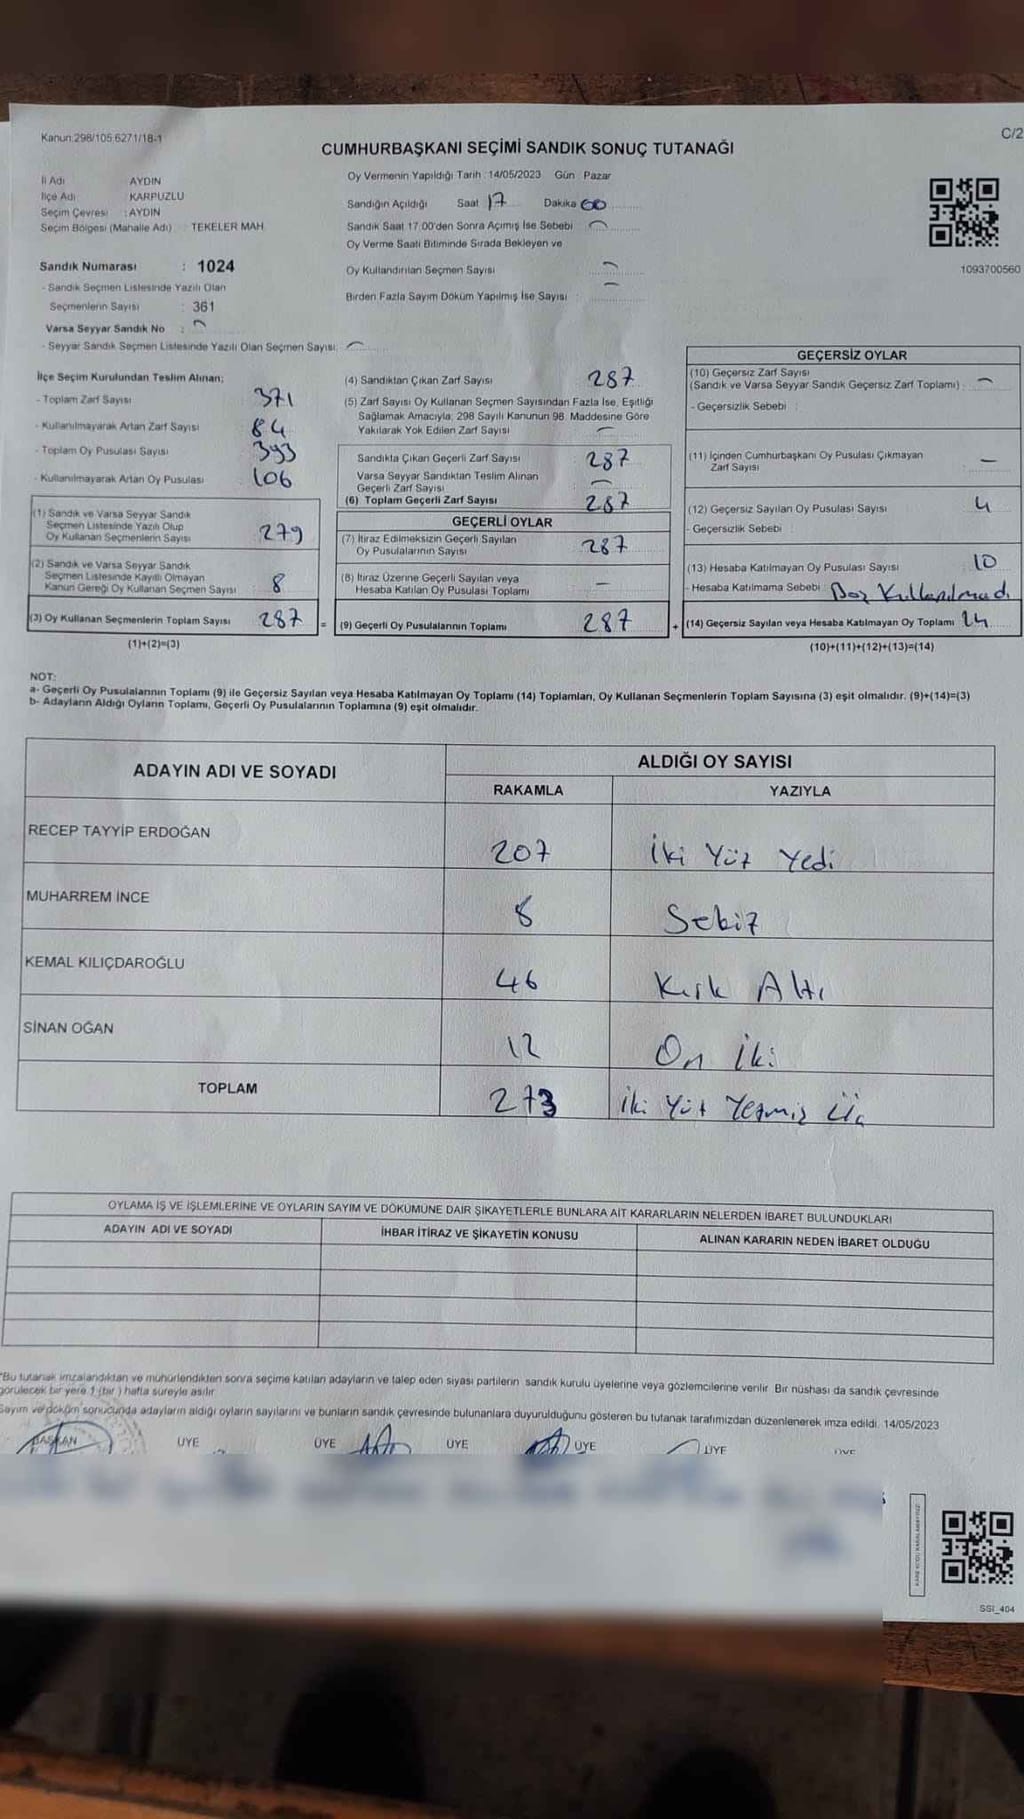 Kanun:298/105.6271/18-1
C/2
CUMHURBAŞKANI SEÇİMİ SANDIK SONUÇ TUTANAĞI
İl Adı AYDIN
İlçe Adı KARPUZLU
Seçim Çevresi : AYDIN
Seçim Bölgesi (Mahalle Adı) : TEKELER MAH.
Sandık Numarası : 1024
- Sandık Seçmen Listesinde Yazılı Olan
Seçmenlerin Sayısı : 361
Varsa Seyyar Sandık No :
- Seyyar Sandık Seçmen Listesinde Yazılı Olan Seçmen Sayısı:
Oy Vermenin Yapıldığı Tarih : 14/05/2023 Gün Pazar
Sandığın Açıldığı Saat 17 Dakika 00
Sandık Saat 17.00'den Sonra Açımış İse Sebebi
Oy Verme Saati Bitiminde Sırada Bekleyen ve
Oy Kullandırılan Seçmen Sayısı
Birden Fazla Sayım Döküm Yapılmış İse Sayısı :
1093700560
İlçe Seçim Kurulundan Teslim Alınan;
- Toplam Zarf Sayısı 371
- Kullanılmayarak Artan Zarf Sayısı 84
- Toplam Oy Pusulası Sayısı 393
- Kullanılmayarak Artan Oy Pusulası 106
(1) Sandık ve Varsa Seyyar Sandık
Seçmen Listesinde Yazılı Olup
Oy Kullanan Seçmenlerin Sayısı 279
(2) Sandık ve Varsa Seyyar Sandık
Seçmen Listesinde Kayıtlı Olmayan
Kanun Gereği Oy Kullanan Seçmen Sayısı 8
(3) Oy Kullanan Seçmenlerin Toplam Sayısı 287 =
(1)+(2)=(3)
(4) Sandıktan Çıkan Zarf Sayısı 287
(5) Zarf Sayısı Oy Kullanan Seçmen Sayısından Fazla İse, Eşitliği
Sağlamak Amacıyla; 298 Sayılı Kanunun 98. Maddesine Göre
Yakılarak Yok Edilen Zarf Sayısı —
Sandıkta Çıkan Geçerli Zarf Sayısı 287
Varsa Seyyar Sandıktan Teslim Alınan
Geçerli Zarf Sayısı —
(6) Toplam Geçerli Zarf Sayısı 287
GEÇERLİ OYLAR
(7) İtiraz Edilmeksizin Geçerli Sayılan
Oy Pusulalarının Sayısı 287
(8) İtiraz Üzerine Geçerli Sayılan veya
Hesaba Katılan Oy Pusulası Toplamı —
(9) Geçerli Oy Pusulalarının Toplamı 287 +
GEÇERSİZ OYLAR
(10) Geçersiz Zarf Sayısı
(Sandık ve Varsa Seyyar Sandık Geçersiz Zarf Toplamı) : —
- Geçersizlik Sebebi :
(11) İçinden Cumhurbaşkanı Oy Pusulası Çıkmayan
Zarf Sayısı : —
(12) Geçersiz Sayılan Oy Pusulası Sayısı 4
- Geçersizlik Sebebi
(13) Hesaba Katılmayan Oy Pusulası Sayısı 10
- Hesaba Katılmama Sebebi : Boş Kullanılmadı
(14) Geçersiz Sayılan veya Hesaba Katılmayan Oy Toplamı 14
(10)+(11)+(12)+(13)=(14)
NOT:
a- Geçerli Oy Pusulalarının Toplamı (9) ile Geçersiz Sayılan veya Hesaba Katılmayan Oy Toplamı (14) Toplamları, Oy Kullanan Seçmenlerin Toplam Sayısına (3) eşit olmalıdır. (9)+(14)=(3)
b- Adayların Aldığı Oyların Toplamı, Geçerli Oy Pusulalarının Toplamına (9) eşit olmalıdır.
ADAYIN ADI VE SOYADI ALDIĞI OY SAYISI
RAKAMLA YAZIYLA
RECEP TAYYİP ERDOĞAN 207 İki Yüz Yedi
MUHARREM İNCE 8 Sekiz
KEMAL KILIÇDAROĞLU 46 Kırk Altı
SİNAN OĞAN 12 On İki
TOPLAM 273 İki Yüz Yetmiş Üç
OYLAMA İŞ VE İŞLEMLERİNE VE OYLARIN SAYIM VE DÖKÜMÜNE DAİR ŞİKAYETLERLE BUNLARA AİT KARARLARIN NELERDEN İBARET BULUNDUKLARI
ADAYIN ADI VE SOYADI İHBAR İTİRAZ VE ŞİKAYETİN KONUSU ALINAN KARARIN NEDEN İBARET OLDUĞU
*Bu tutanak imzalandıktan ve mühürlendikten sonra seçime katılan adayların ve talep eden siyasi partilerin sandık kurulu üyelerine veya gözlemcilerine verilir. Bir nüshası da sandık çevresinde
görülecek bir yere 1 (bir ) hafta süreyle asılır
Sayım ve döküm sonucunda adayların aldığı oyların sayılarını ve bunların sandık çevresinde bulunanlara duyurulduğunu gösteren bu tutanak tarafımızdan düzenlenerek imza edildi. 14/05/2023
BAŞKAN ÜYE ÜYE ÜYE ÜYE ÜYE ÜYE
SSI_404